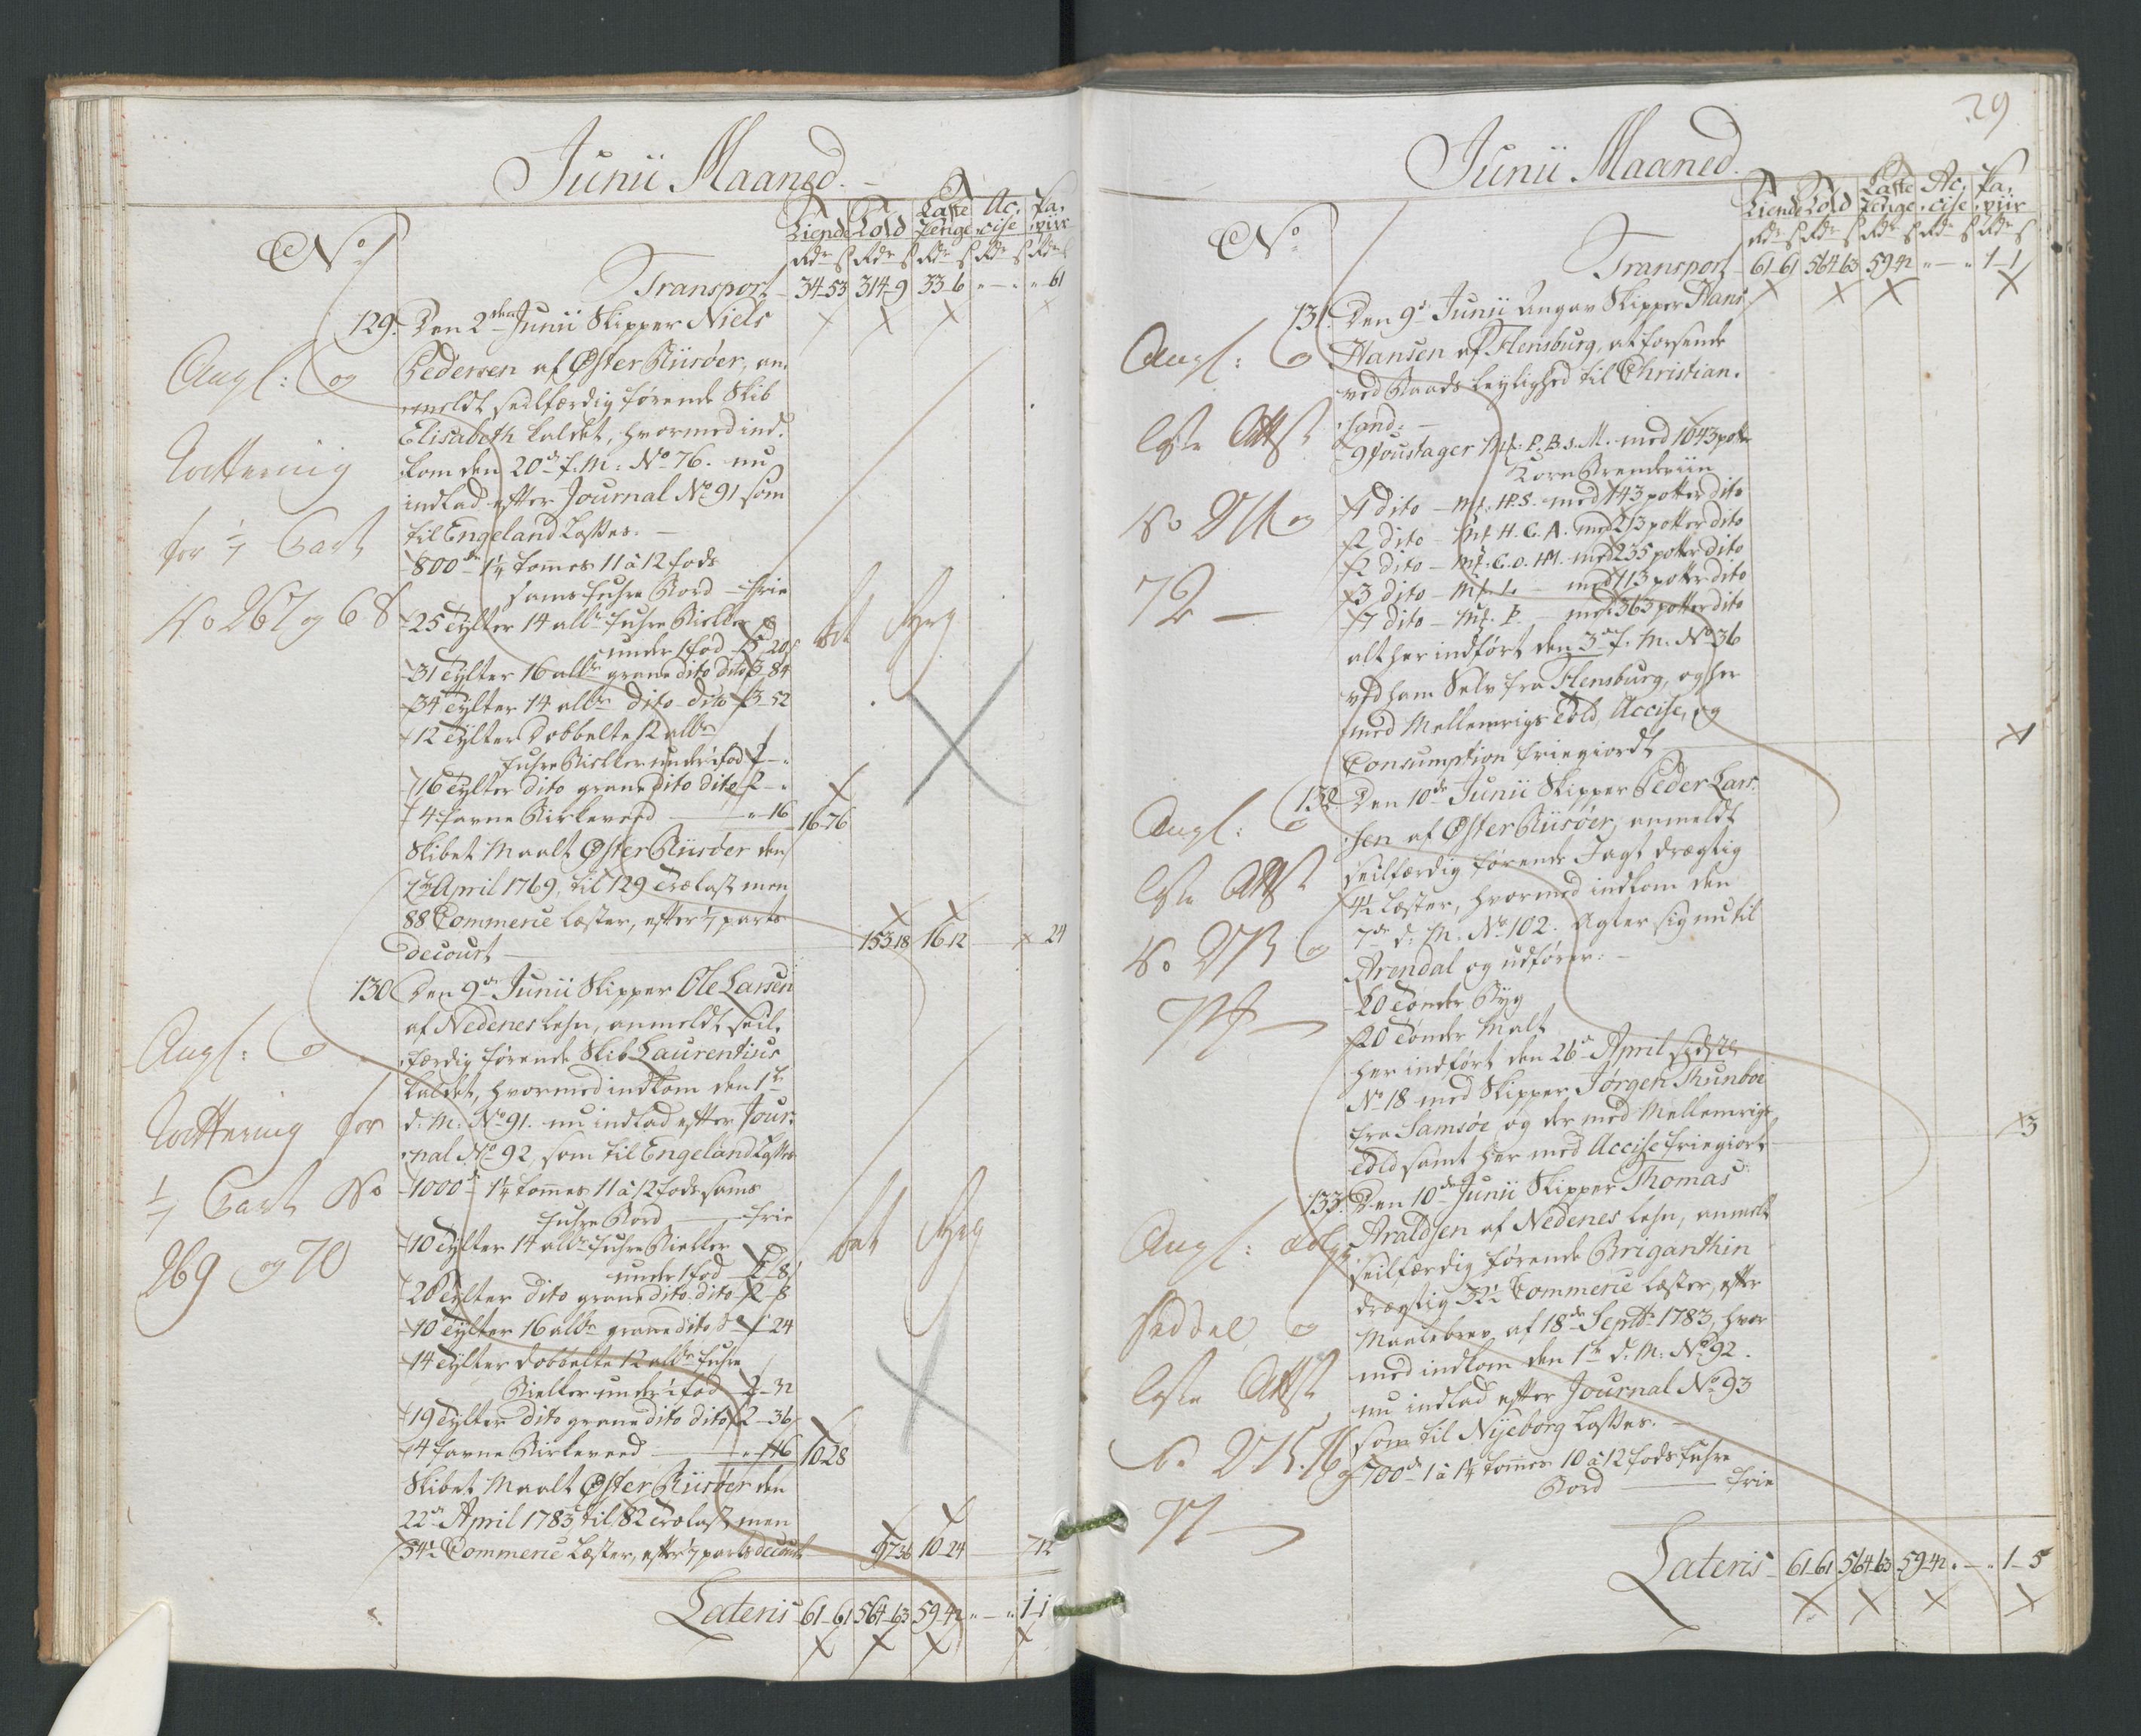 Junii Maaned.
No
Tiende Told Laste Penge Ac,cise Pa,piir
Rdr s Rdr s Rdr s Rdr s Rdr s
Transport 34-53 314-9 33-6 „-„ „-61
129. Den 2den Junii Skipper Niels
Pedersen af ØsterRiisöer, an,
meldt seilfærdig førende Skib
Elisabeth kaldet, hvormed ind,
kom den 20de f: M: No 76. nu
indlad efter Journal No 91 som
til Engeland Lastes.
800de 1¼ tommes 11 à 12 fods
sams Fuhre Bord - frie
25 Tylter 14 alln Fuhre Bielker
under 1 fod 5-20
31 Tylter 16 alln grane dito dito 3-84
34 Tylter 14 alln dito dito 3-52
12 Tylter Dobbelte 12 alln
Fuhre Bielker under 1 fod 2-„
16 Tylter dito grane dito dito 2-„
4 favne Birkeveed „-16 16-76
Skibet Maalt ØsterRiisöer den
April 1769, til 129 Trælast, men
88 Commerce Læster, efter 1/7 parts
decourt 153.18 16.12 24
Angl: og
Qvittering
for 1/7 Part
No 267 og 68
130 Den 9de Junii Skipper Ole Larsen
af Nedenes Lehn, anmeldt seil,
færdig førende Skib Laurentius
kaldet, hvormed indkom den 1te
d: M: No 91. nu indlad efter Jour,
nal No 92, som til Engeland Lastes
1000de 1¼ tommes 11 à 12 fods sams
Fuhre Bord frie
10 Tylter 14 alln Fuhre Bielker
under 1 fod 2-8
20 Tylter dito grane dito dito 2-8
10 Tylter 16 alln grane dito do 1-24
14 Tylter dobbelte 12 alln Fuhre
Bielker under 1 fod 2-32
19 Tylter dito grane dito dito 2-36
4 favne Birkeveed „-16 10-28
Skibet Maalt ØsterRiisöer den
22de April 1783, til 82 Trælast, men
54½ Commerce Læster, efter 1/7 parts decourt 97.36 10-24 12
Angl: og
Qvittering for
1/7 Part No
269 og 70
Lateris 61-61 564-63 59-42 „-„ 1-1
29
Junii Maaned.
No
Tiende Told Laste Penge Ac,cise Pa,piir
Rdr s Rdr s Rdr s Rdr s Rdr s
Transport 61-61 564-63 59-42 „-„ 1-1
131. Den 9de Junii Angav Skipper Hans
Hansen af Flensburg, at forsende
ved Baads Leylighed til Christian,
sand:
9 foustager Mk. P.B.S.M. med 1043 potter
Korn Brendeviin
1 dito - Mk. H.S. med 143 potter dito
2 dito - Mk H.C.A. med 213 potter dito
2 dito - Mk. C.O.M. med 235 potter dito
3 dito - Mk. L. - med 113 potter dito
7 dito - Mk. P. - med 363 potter dito
alt her indført den 3de f. M. No 36
ved ham Selv fra Flensburg, og her
med Mellemrigs Told, Accise, og
Consumption friegiordt
Angl: og
No 271 og
72
132. Den 10de Junii Skipper Peder Lar,
sen af ØsterRiisöer, anmeldt
seilfærdig førende Jagt drægtig
4½ Læster, hvormed indkom den
7de d: M. No 102. Agter sig nu til
Arendal og udfører:
20 Tønder Byg
20 Tønder Malt
her indført den 26de April sidste
No 18 med Skipper Jørgen Thunboe
fra Samsöe og der med Mellemrigs
Told samt her med Accise friegiort 3
Angl:
No 273 og
74
133. Den 10de Junii Skipper Thomas
Araldsen af Nedenes Lehn, anmeldt
seilfærdig førende Briganthin
drægtig 32½ Commerce Læster, efter
Maalebrev af 18de Septbr 1783, hvor
med indkom den 1te d: M: No 92.
nu indlad efter Journal No 93
som til Nyeborg Lastes.
700de 1 à 1¼ tommes 10 à 12 fods Fuhre
Bord frie
Angl:
seddel og
No 275. 76 og
77
Lateris 61-61 564-63 59-42 „-„ 1-5